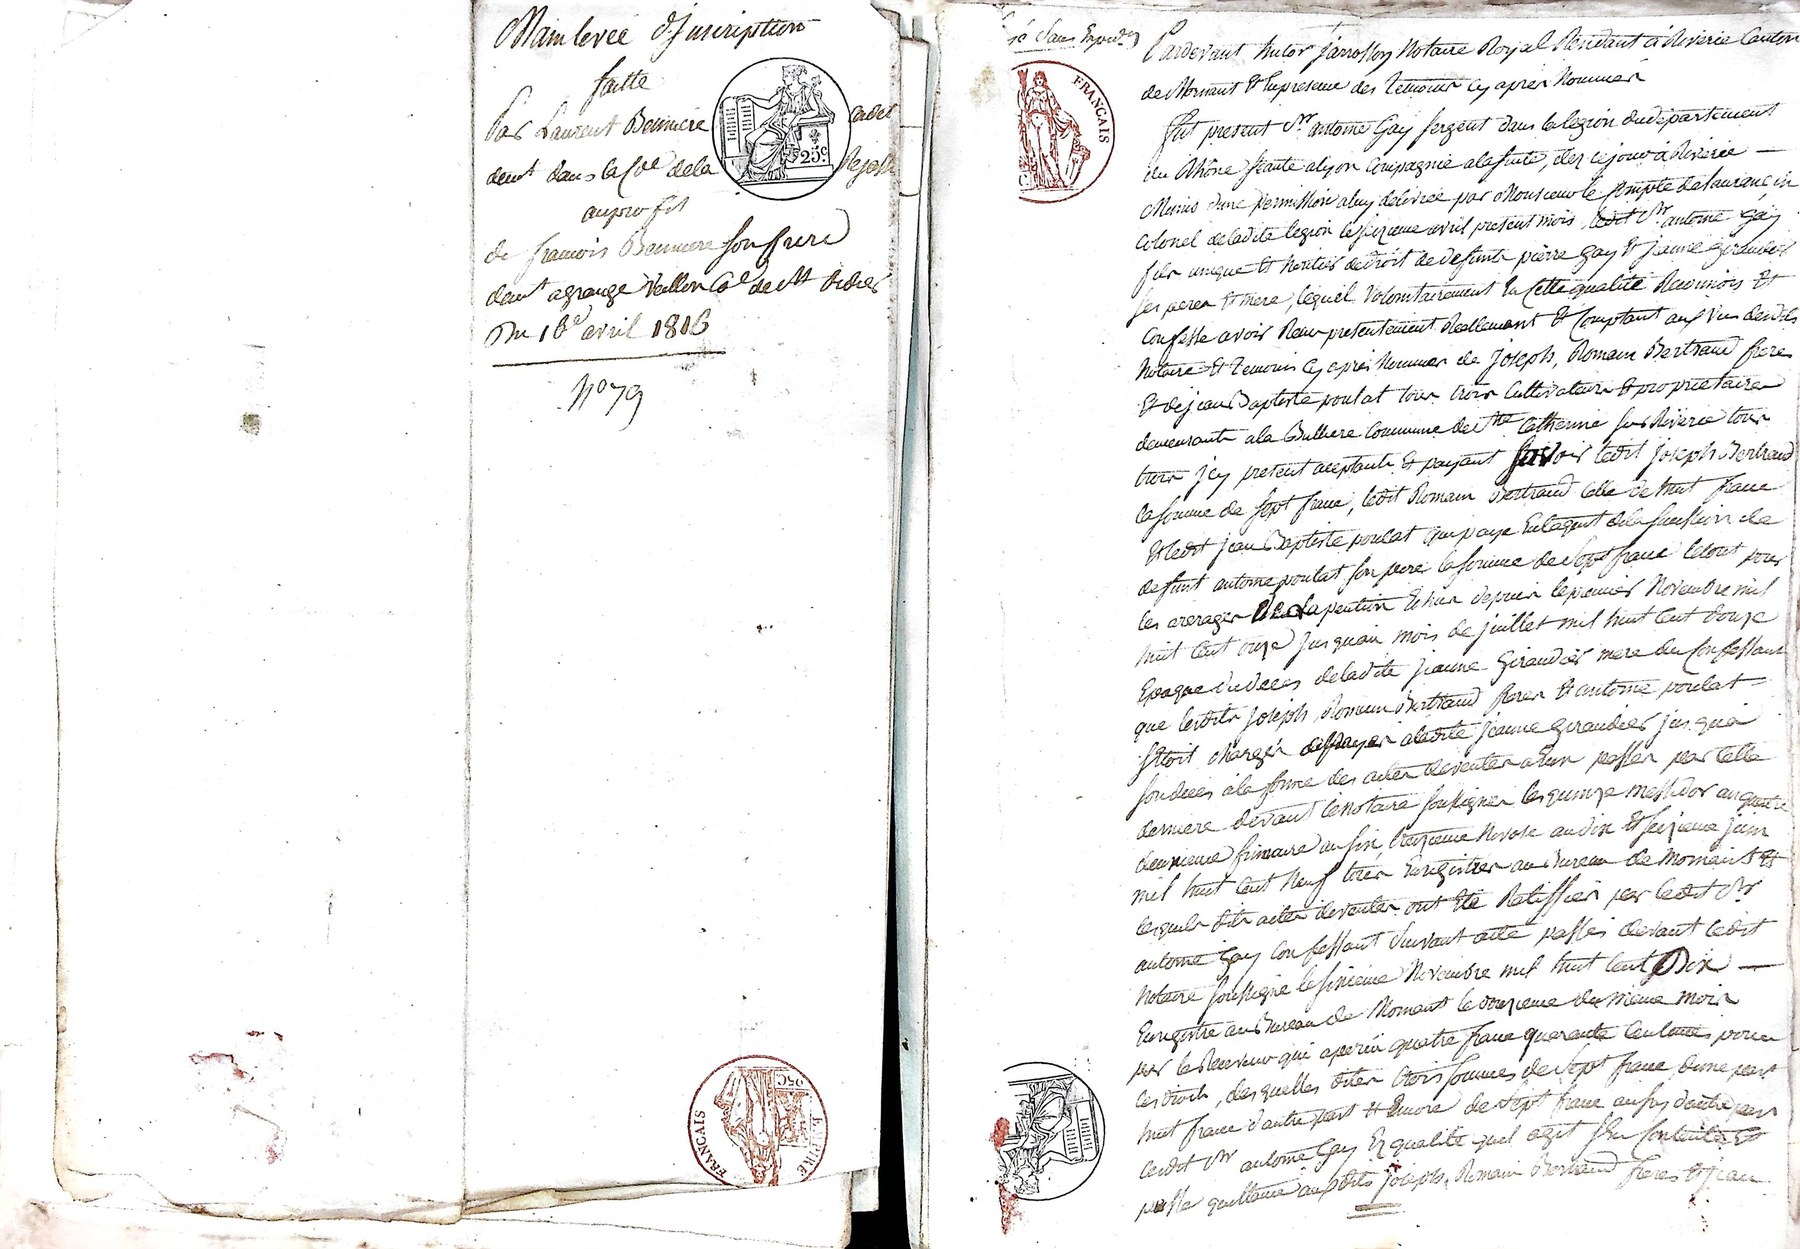 Mainlevée d'Inscription
faitte
Par Laurent Bonniere cadet
demt dans la Cne de la Rajasse
25c
au profit
de francois Bonniere son frere
demt a grange Vallon Cne de St Didier
Du 16e avril 1816
No 79
FRANÇAIS
EMPIRE
25C
sans Expedon
FRANÇAIS
Pardevant hector Notaire Royal Residant à Riverie Canton
de Mornant Et En presence des Temoins Cy apres Nommés
fut present Sr antoine Gay sergent dans la legion du departement
du Rhône seante a lyon Compagnie a la suite, de ce jour à Riverie —
Munis d'une permission a luy délivrée par Monsieur le Compte de
Colonel de ladite legion le seizieme avril present mois, ledit Sr antoine Gay
fils unique Et heritier de droit de defunts pierre Gay Et jeanne Giraudier
ses peres Et mere, lequel Volontairement En Cette qualité Reconnois Et
Confesse avoir Reçu presentement Reellement Et Comptant aux Vus desdits
Notaire Et Temoins Cy apres Nommés de joseph, Romain Bertrand freres
Et de jean Baptiste poulat tous trois Cultivateurs Et propriétaires
demeurants a la Bulliere Commune de Ste Catherine sur Riverie tous
trois jcy present aceptants Et payant savoir ledit joseph Bertrand
la somme de sept franc, ledit Romain Bertrand Celle de huit franc
Et ledit jean Baptiste poulat qui paye En laquit de la succession de
defunt antoine poulat son pere la somme de sept franc le tout pour
les arerages de la pention Echue depuis le premier Novembre mil
huit Cent onze jusqu'au mois de juillet mil huit Cent douze
Epoque du deces de ladite jeanne Giraudier mere du Confessant
que lesdits joseph, Romain Bertrand freres Et antoine poulat
Etoit chargés de payer a ladite jeanne Giraudier jusqu'a
son deces à la forme des actes de ventes a Eux passés par Cette
derniere devant le Notaire soussigner les quinze messidor an quatre
deuxieme frimaire an six treizieme Nivose an dix Et seizieme juin
mil huit Cent Neuf tous Enregistrer au Bureau de Mornant Et
lesquels dits actes de ventes ont Eté Ratiffiés par ledit Sr
antoine Gay Confessant suivant acte passés devant ledit
Notaire soussigné le sixieme Novembre mil huit Cent Dix —
Enregistré au Bureau de Mornant le douzieme du même mois
par le Receveur qui a perçu quatre franc quarante Centimes pour
les droits, desquelles dites trois sommes de sept franc d'une part
huit franc d'autre part Et Encore de sept franc aussy d'autre part
ledit Sr antoine Gay En qualité qu'il agit s'En Contente Et
passe quittance auxdits joseph, Romain Bertrand freres Et jean